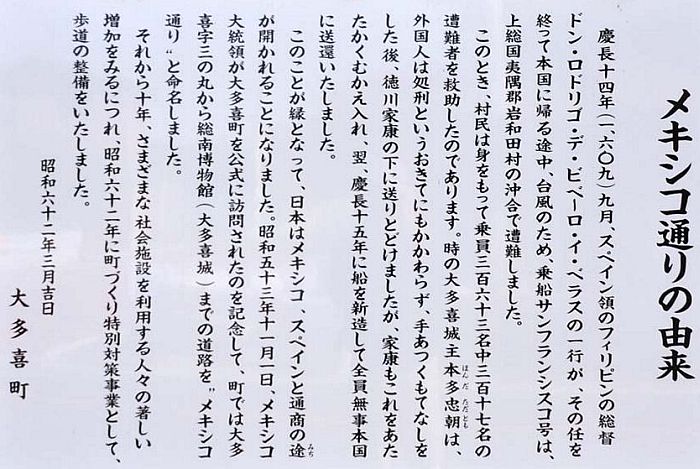 メキシコ通りの由来
慶長十四年(一、六〇九)九月、スペイン領のフィリピンの総督
ドン・ロドリゴ・デ・ビベーロ・イ・ベラスの一行が、その任を
終って本国に帰る途中、台風のため、乗船サンフランシスコ号は、
上総国夷隅郡岩和田村の沖合で遭難しました。
このとき、村民は身をもって乗員三百六十三名中三百十七名の
遭難者を救助したのであります。時の大多喜城主本多忠朝は、
ほんだ ただとも
外国人は処刑というおきてにもかかわらず、手あつくもてなしを
した後、徳川家康の下に送りとどけましたが、家康もこれをあた
たかくむかえ入れ、翌、慶長十五年に船を新造して全員無事本国
に送還いたしました。
このことが縁となって、日本はメキシコ、スペインと通商の途
みち
が開かれることになりました。昭和五十三年十一月一日、メキシコ
大統領が大多喜町を公式に訪問されたのを記念して、町では大多
喜字三の丸から総南博物館(大多喜城)までの道路を〝メキシコ
通り〟と命名しました。
それから十年、さまざまな社会施設を利用する人々の著しい
増加をみるにつれ、昭和六十二年に町づくり特別対策事業として、
歩道の整備をいたしました。
昭和六十二年三月吉日
大多喜町